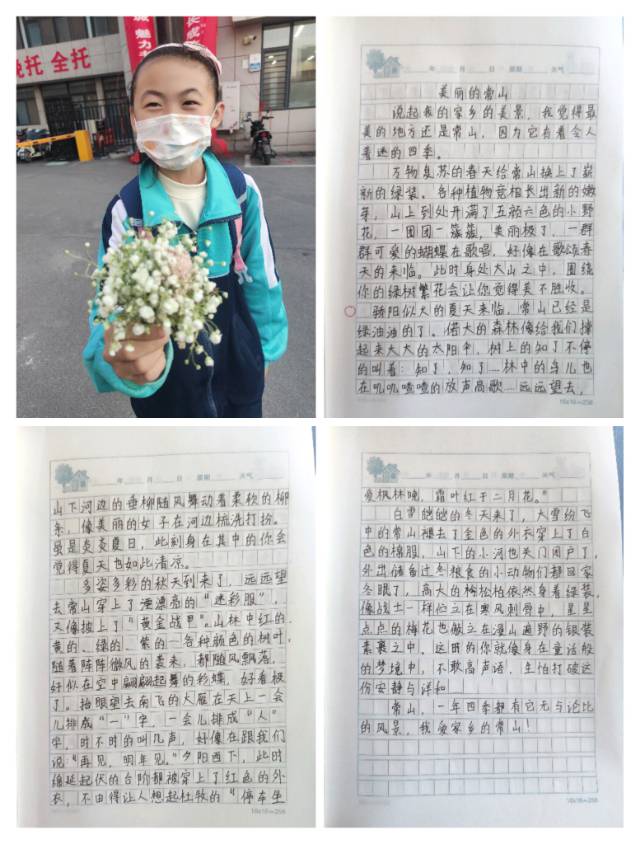 晚托 全托
魅力
年 月 日 星期 天气
美丽的常山
说起我的家乡的美景,我觉得最
美的地方还是常山,因为它有着令人
着迷的四季。
万物复苏的春天给常山换上了崭
新的绿装。各种植物竞相长出新的嫩
芽,山上到处开满了五颜六色的小野
花,一团团一簇簇,美丽极了,一群
群可爱的蝴蝶在歌唱,好像在歌颂春
天的来临。此时身处大山之中,围绕
你的绿树繁花会让你觉得美不胜收。
骄阳似火的夏天来临,常山已经是
绿油油的了。偌大的森林像给我们撑
起来大大的太阳伞,树上的知了不停
的叫着:知了,知了…林中的鸟儿也
在叽叽喳喳的放声高歌…远远望去,
16×16=256
年 月 日 星期 天气
山下河边的垂柳随风舞动着柔软的柳
条,像美丽的女子在河边梳洗打扮。
虽是炎炎夏日,此刻身在其中的你会
觉得夏天也如此清凉。
多姿多彩的秋天到来了,远远望
去常山穿上了漂漂亮的“迷彩服”,
又像披上了“黄金战甲”。山林中红的、
黄的、绿的、紫的一各种颜色的树叶,
随着阵阵微风的袭来,都随风飘落,
好似在空中翩翩起舞的彩蝶,好看极
了。抬眼望去南飞的大雁在天上一会
儿排成“一”字,一会儿排成“人”
字,时不时的叫几声,好像在跟我们
说“再见,明年见。”夕阳西下,此时
绵延起伏的台阶都被穿上了红色的外
衣,不由得让人想起杜牧的“停车坐
16×16=256
年 月 日 星期 天气
爱枫林晚,霜叶红于二月花。”
白雪皑皑的冬天来了,大雪纷飞
中的常山褪去了金色的外衣穿上了白
色的棉服,山下的小河也关门闭户了,
外出储备过冬粮食的小动物们都回家
冬眠了,高大的松柏依然身着绿装,
像战士一样伫立在寒风刺骨中,星星
点点的梅花也傲立在漫山遍野的银装
素裹之中。这时的你就像身在童话般
的梦境中,不敢高声语,生怕打破这
份安静与洋和
常山,一年四季都有它无与论比
的风景,我爱家乡的常山!
16×16=256